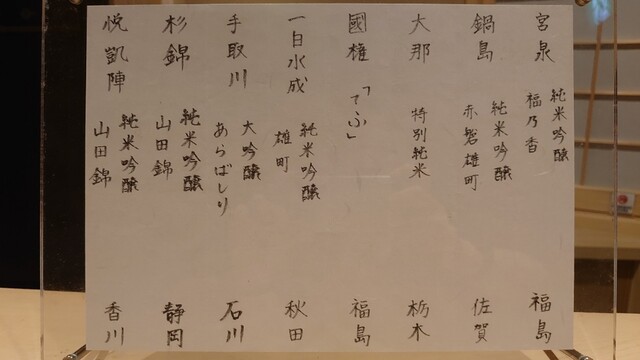 宮泉
純米吟醸
福乃香
福島
鍋島
純米吟醸
赤磐雄町
佐賀
大那
特別純米
栃木
國権
「てふ」
福島
一白水成
純米吟醸
雄町
秋田
手取川
大吟醸
あらばしり
石川
杉錦
純米吟醸
山田錦
静岡
悦凱陣
純米吟醸
山田錦
香川